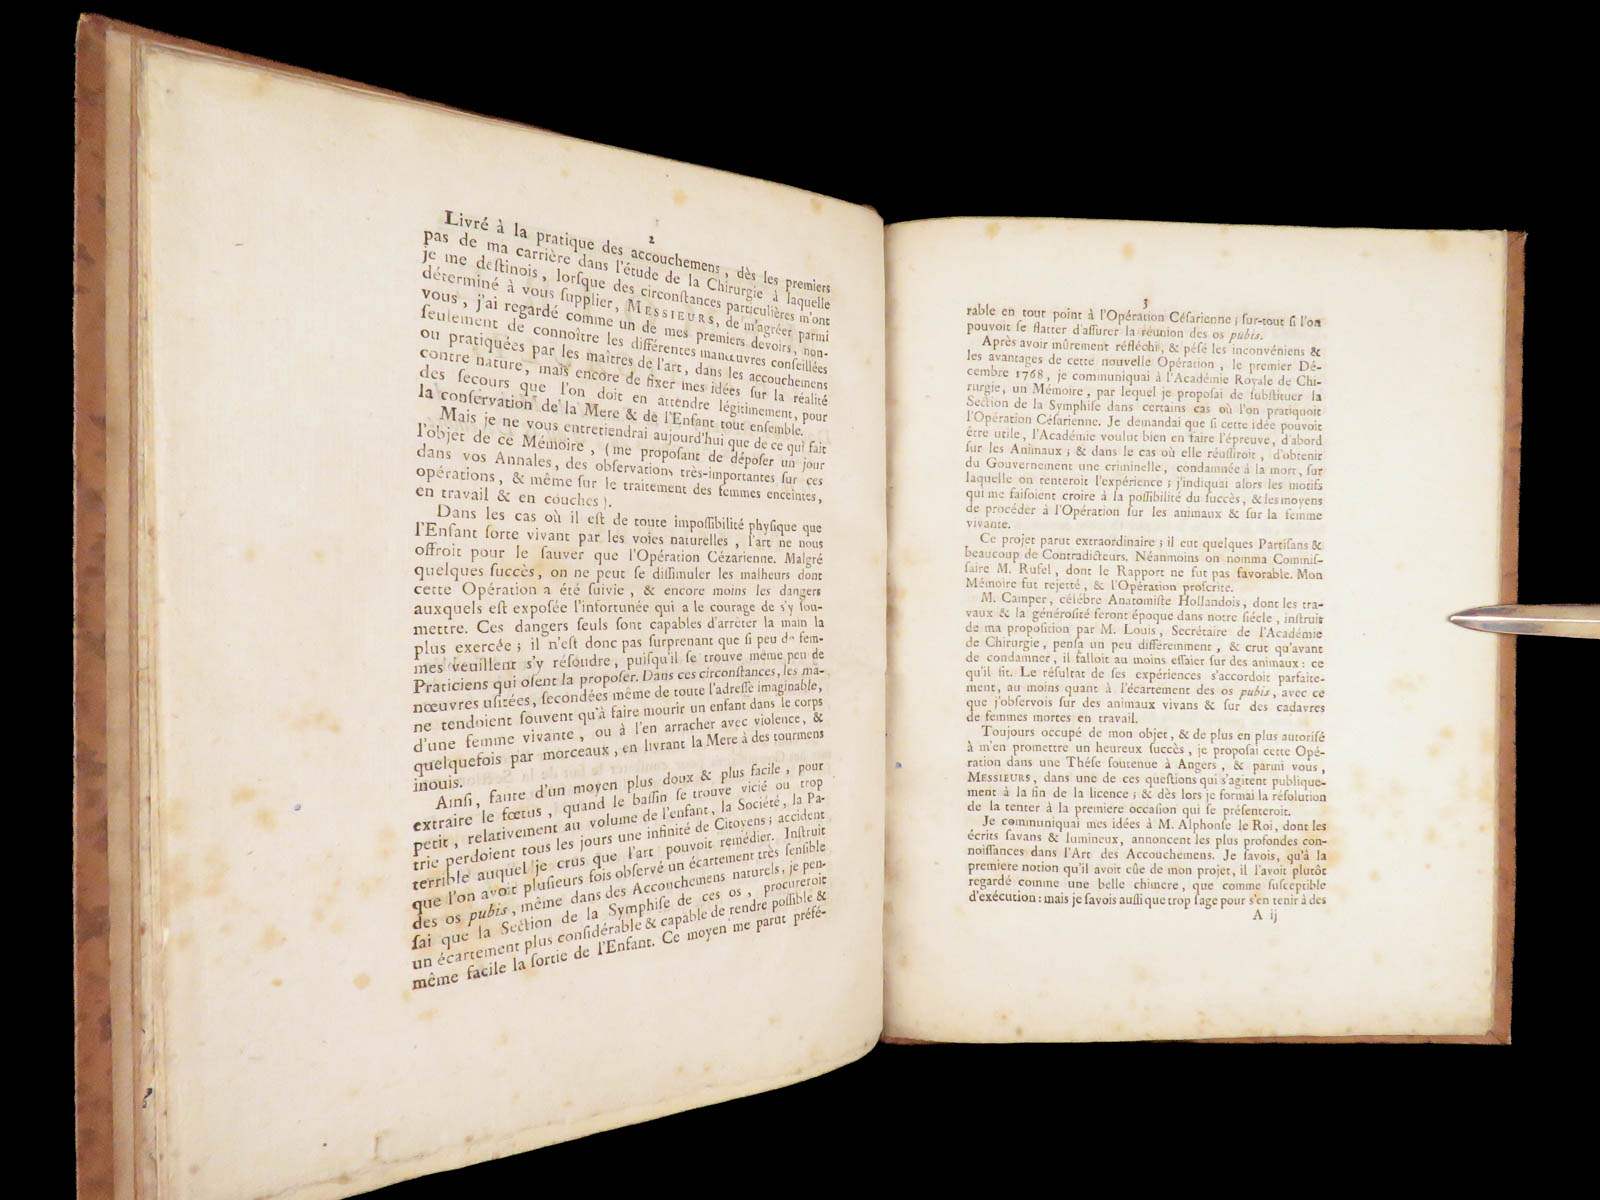 2
Livré à la pratique des accouchemens, dès les premiers
pas de ma carrière dans l'étude de la Chirurgie à laquelle
je me deſtinois, lorſque des circonſtances particulières m'ont
déterminé à vous ſupplier, MESSIEURS, de m'agréer parmi
vous, j'ai regardé comme un de mes premiers devoirs, non-
ſeulement de connoître les différentes manœuvres conſeillées
ou pratiquées par les maîtres de l'art, dans les accouchemens
contre nature, mais encore de fixer mes idées ſur la réalité
des ſecours que l'on doit en attendre légitimement, pour
la conſervation de la Mere & de l'Enfant tout enſemble.
Mais je ne vous entretiendrai aujourd'hui que de ce qui fait
l'objet de ce Mémoire, (me propoſant de dépoſer un jour
dans vos Annales, des obſervations très-importantes ſur ces
opérations, & même ſur le traitement des femmes enceintes,
en travail & en couches).
Dans les cas où il eſt de toute impoſſibilité phyſique que
l'Enfant ſorte vivant par les voies naturelles, l'art ne nous
offroit pour le ſauver que l'Opération Cézarienne. Malgré
quelques ſuccès, on ne peut ſe diſſimuler les malheurs dont
cette Opération a été ſuivie, & encore moins les dangers
auxquels eſt expoſée l'infortunée qui a le courage de s'y ſou-
mettre. Ces dangers ſeuls ſont capables d'arrêter la main la
plus exercée; il n'eſt donc pas ſurprenant que ſi peu de fem-
mes veuillent s'y réſoudre, puiſqu'il ſe trouve même peu de
Praticiens qui oſent la propoſer. Dans ces circonſtances, les ma-
nœuvres uſitées, ſecondées même de toute l'adreſſe imaginable,
ne tendoient ſouvent qu'à faire mourir un enfant dans le corps
d'une femme vivante, ou à l'en arracher avec violence, &
quelquefois par morceaux, en livrant la Mere à des tourmens
inouis.
Ainſi, faute d'un moyen plus doux & plus facile, pour
extraire le fœtus, quand le baſſin ſe trouve vicié ou trop
petit, relativement au volume de l'enfant, la Société, la Pa-
trie perdoient tous les jours une infinité de Citoyens; accident
terrible auquel je crus que l'art pouvoit remédier. Inſtruit
que l'on avoit pluſieurs fois obſervé un écartement très ſenſible
des os pubis, même dans des Accouchemens naturels, je pen-
ſai que la Section de la Symphiſe de ces os, procureroit
un écartement plus conſidérable & capable de rendre poſſible &
même facile la ſortie de l'Enfant. Ce moyen me parut préfé-
3
rable en tout point à l'Opération Céſarienne; ſur-tout ſi l'on
pouvoit ſe flatter d'aſſurer la réunion des os pubis.
Après avoir mûrement réfléchi, & péſé les inconvéniens &
les avantages de cette nouvelle Opération, le premier Dé-
cembre 1768, je communiquai à l'Académie Royale de Chi-
rurgie, un Mémoire, par lequel je propoſai de ſubſtituer la
Section de la Symphiſe dans certains cas où l'on pratiquoit
l'Opération Céſarienne. Je demandai que ſi cette idée pouvoit
être utile, l'Académie voulut bien en faire l'épreuve, d'abord
ſur les Animaux; & dans le cas où elle réuſſiroit, d'obtenir
du Gouvernement une criminelle, condamnée à la mort, ſur
laquelle on tenteroit l'expérience; j'indiquai alors les motifs
qui me faiſoient croire à la poſſibilité du ſuccès, & les moyens
de procéder à l'Opération ſur les animaux & ſur la femme
vivante.
Ce projet parut extraordinaire; il eut quelques Partiſans &
beaucoup de Contradicteurs. Néanmoins on nomma Commiſ-
ſaire M. Ruſel, dont le Rapport ne fut pas favorable. Mon
Mémoire fut rejetté, & l'Opération proſcrite.
M. Camper, célébre Anatomiſte Hollandois, dont les tra-
vaux & la généroſité feront époque dans notre ſiécle, inſtruit
de ma propoſition par M. Louis, Secrétaire de l'Académie
de Chirurgie, penſa un peu différemment, & crut qu'avant
de condamner, il falloit au moins eſſaier ſur des animaux: ce
qu'il fit. Le réſultat de ſes expériences s'accordoit parfaite-
ment, au moins quant à l'écartement des os pubis, avec ce
que j'obſervois ſur des animaux vivans & ſur des cadavres
de femmes mortes en travail.
Toujours occupé de mon objet, & de plus en plus autoriſé
à m'en promettre un heureux ſuccès, je propoſai cette Opé-
ration dans une Théſe ſoutenue à Angers, & parmi vous,
MESSIEURS, dans une de ces queſtions qui s'agitent publique-
ment à la fin de la licence; & dès lors je formai la réſolution
de la tenter à la premiere occaſion qui ſe préſenteroit.
Je communiquai mes idées à M. Alphonſe le Roi, dont les
écrits ſavans & lumineux, annoncent les plus profondes con-
noiſſances dans l'Art des Accouchemens. Je ſavois, qu'à la
premiere notion qu'il avoit eûe de mon projet, il l'avoit plutôt
regardé comme une belle chimere, que comme ſuſceptible
d'exécution: mais je ſavois auſſi que trop ſage pour s'en tenir à des
A ij